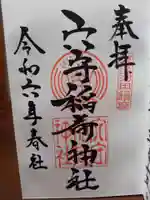 奉拝
穴守稲荷神社
令和六年春社